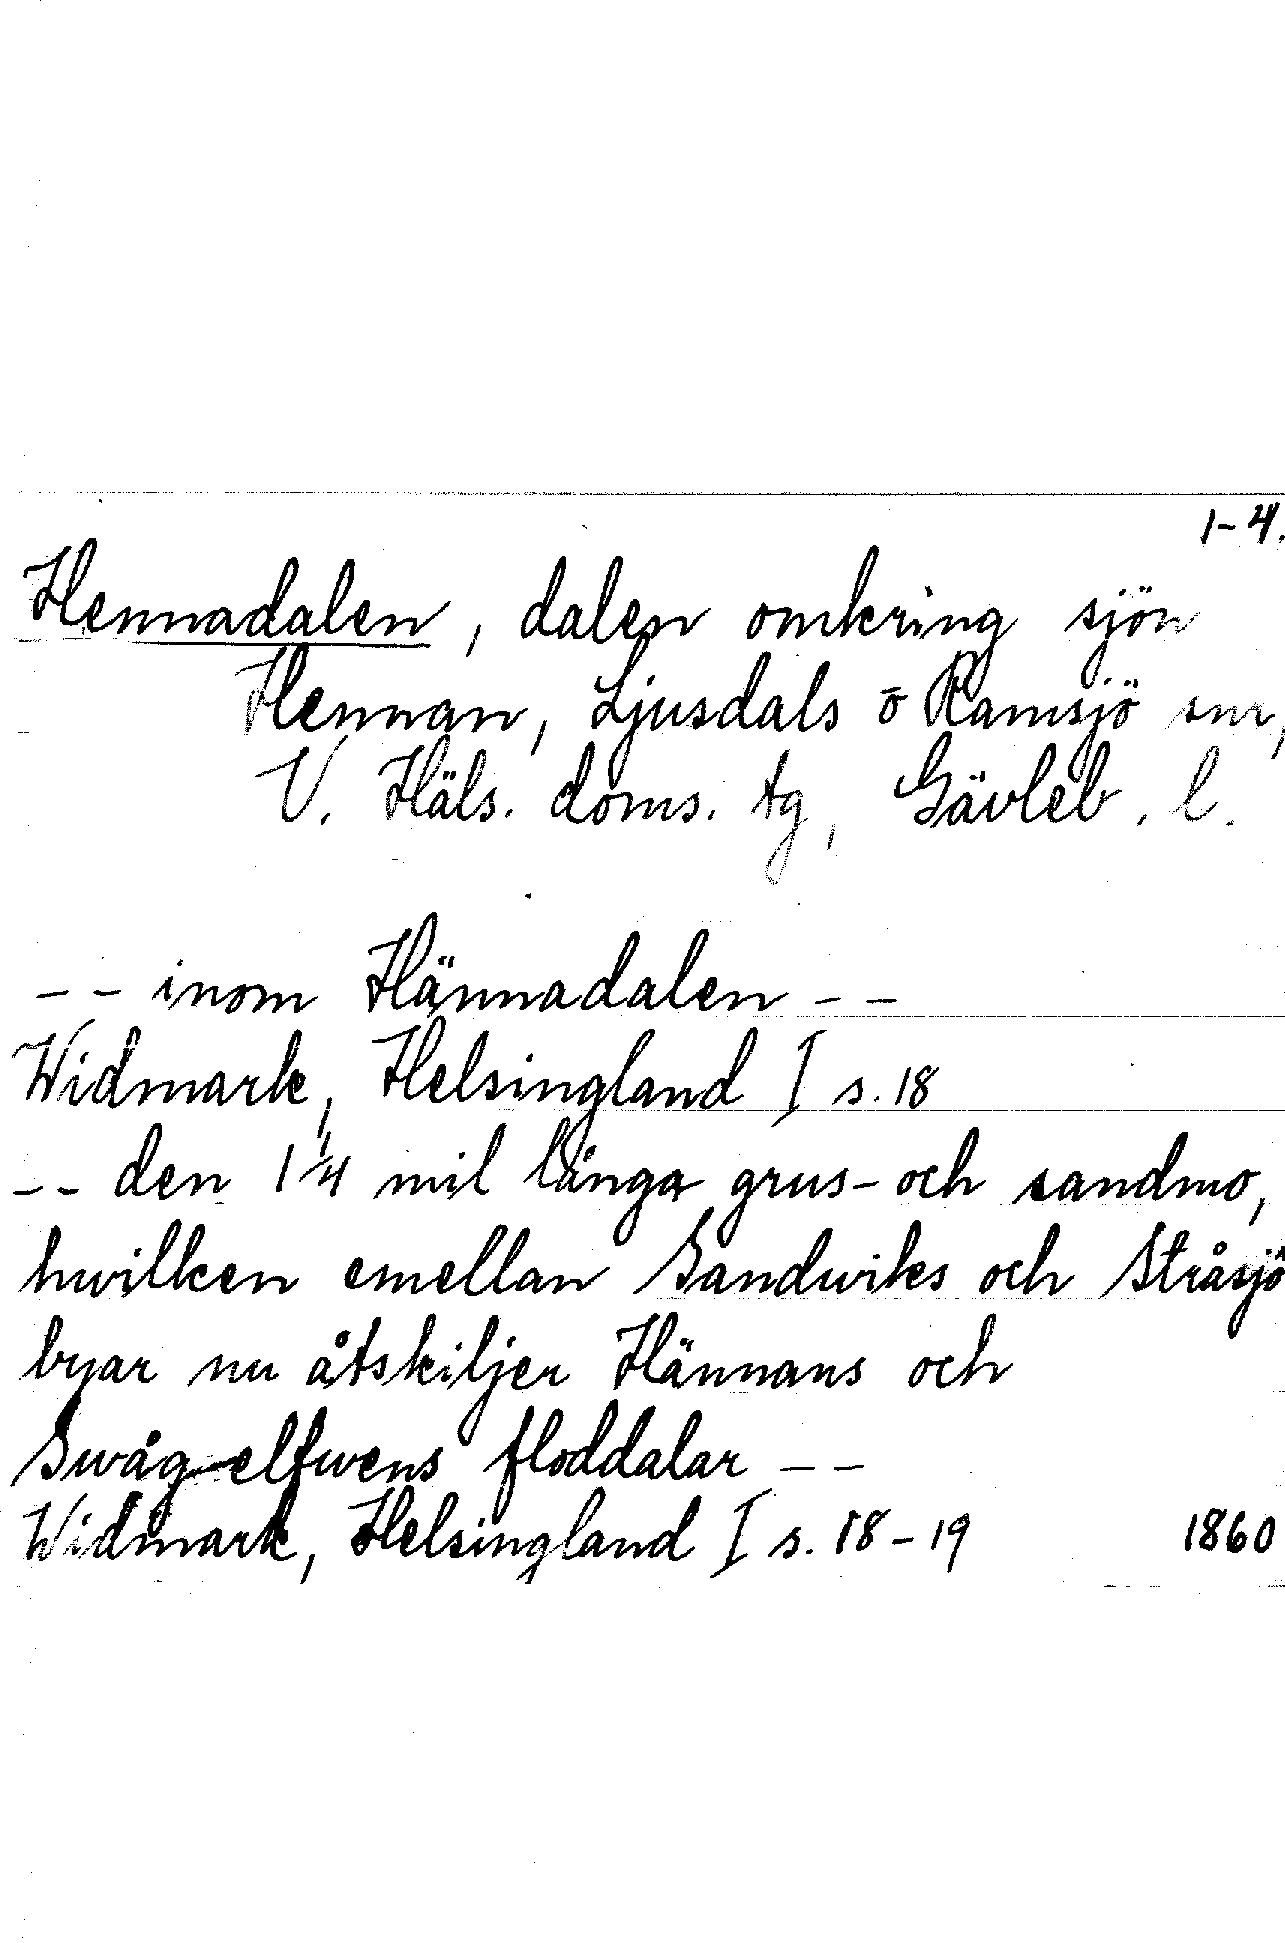 1-4.
Hennadalen, dalen omkring sjön
Hennan, Ljusdals o Ramsjö snr,
V. Häls. doms. tg, Gävleb. l.
-- inom Hännadalen --
Widmark, Helsingland I s. 18
-- den 1 1/4 mil långa grus- och sandmo,
hwilken emellan Sandwiks och Stråsjö
byar nu åtskiljer Hännans och
Swåg-elfwens floddalar --
Widmark, Helsingland I s. 18-19 1860